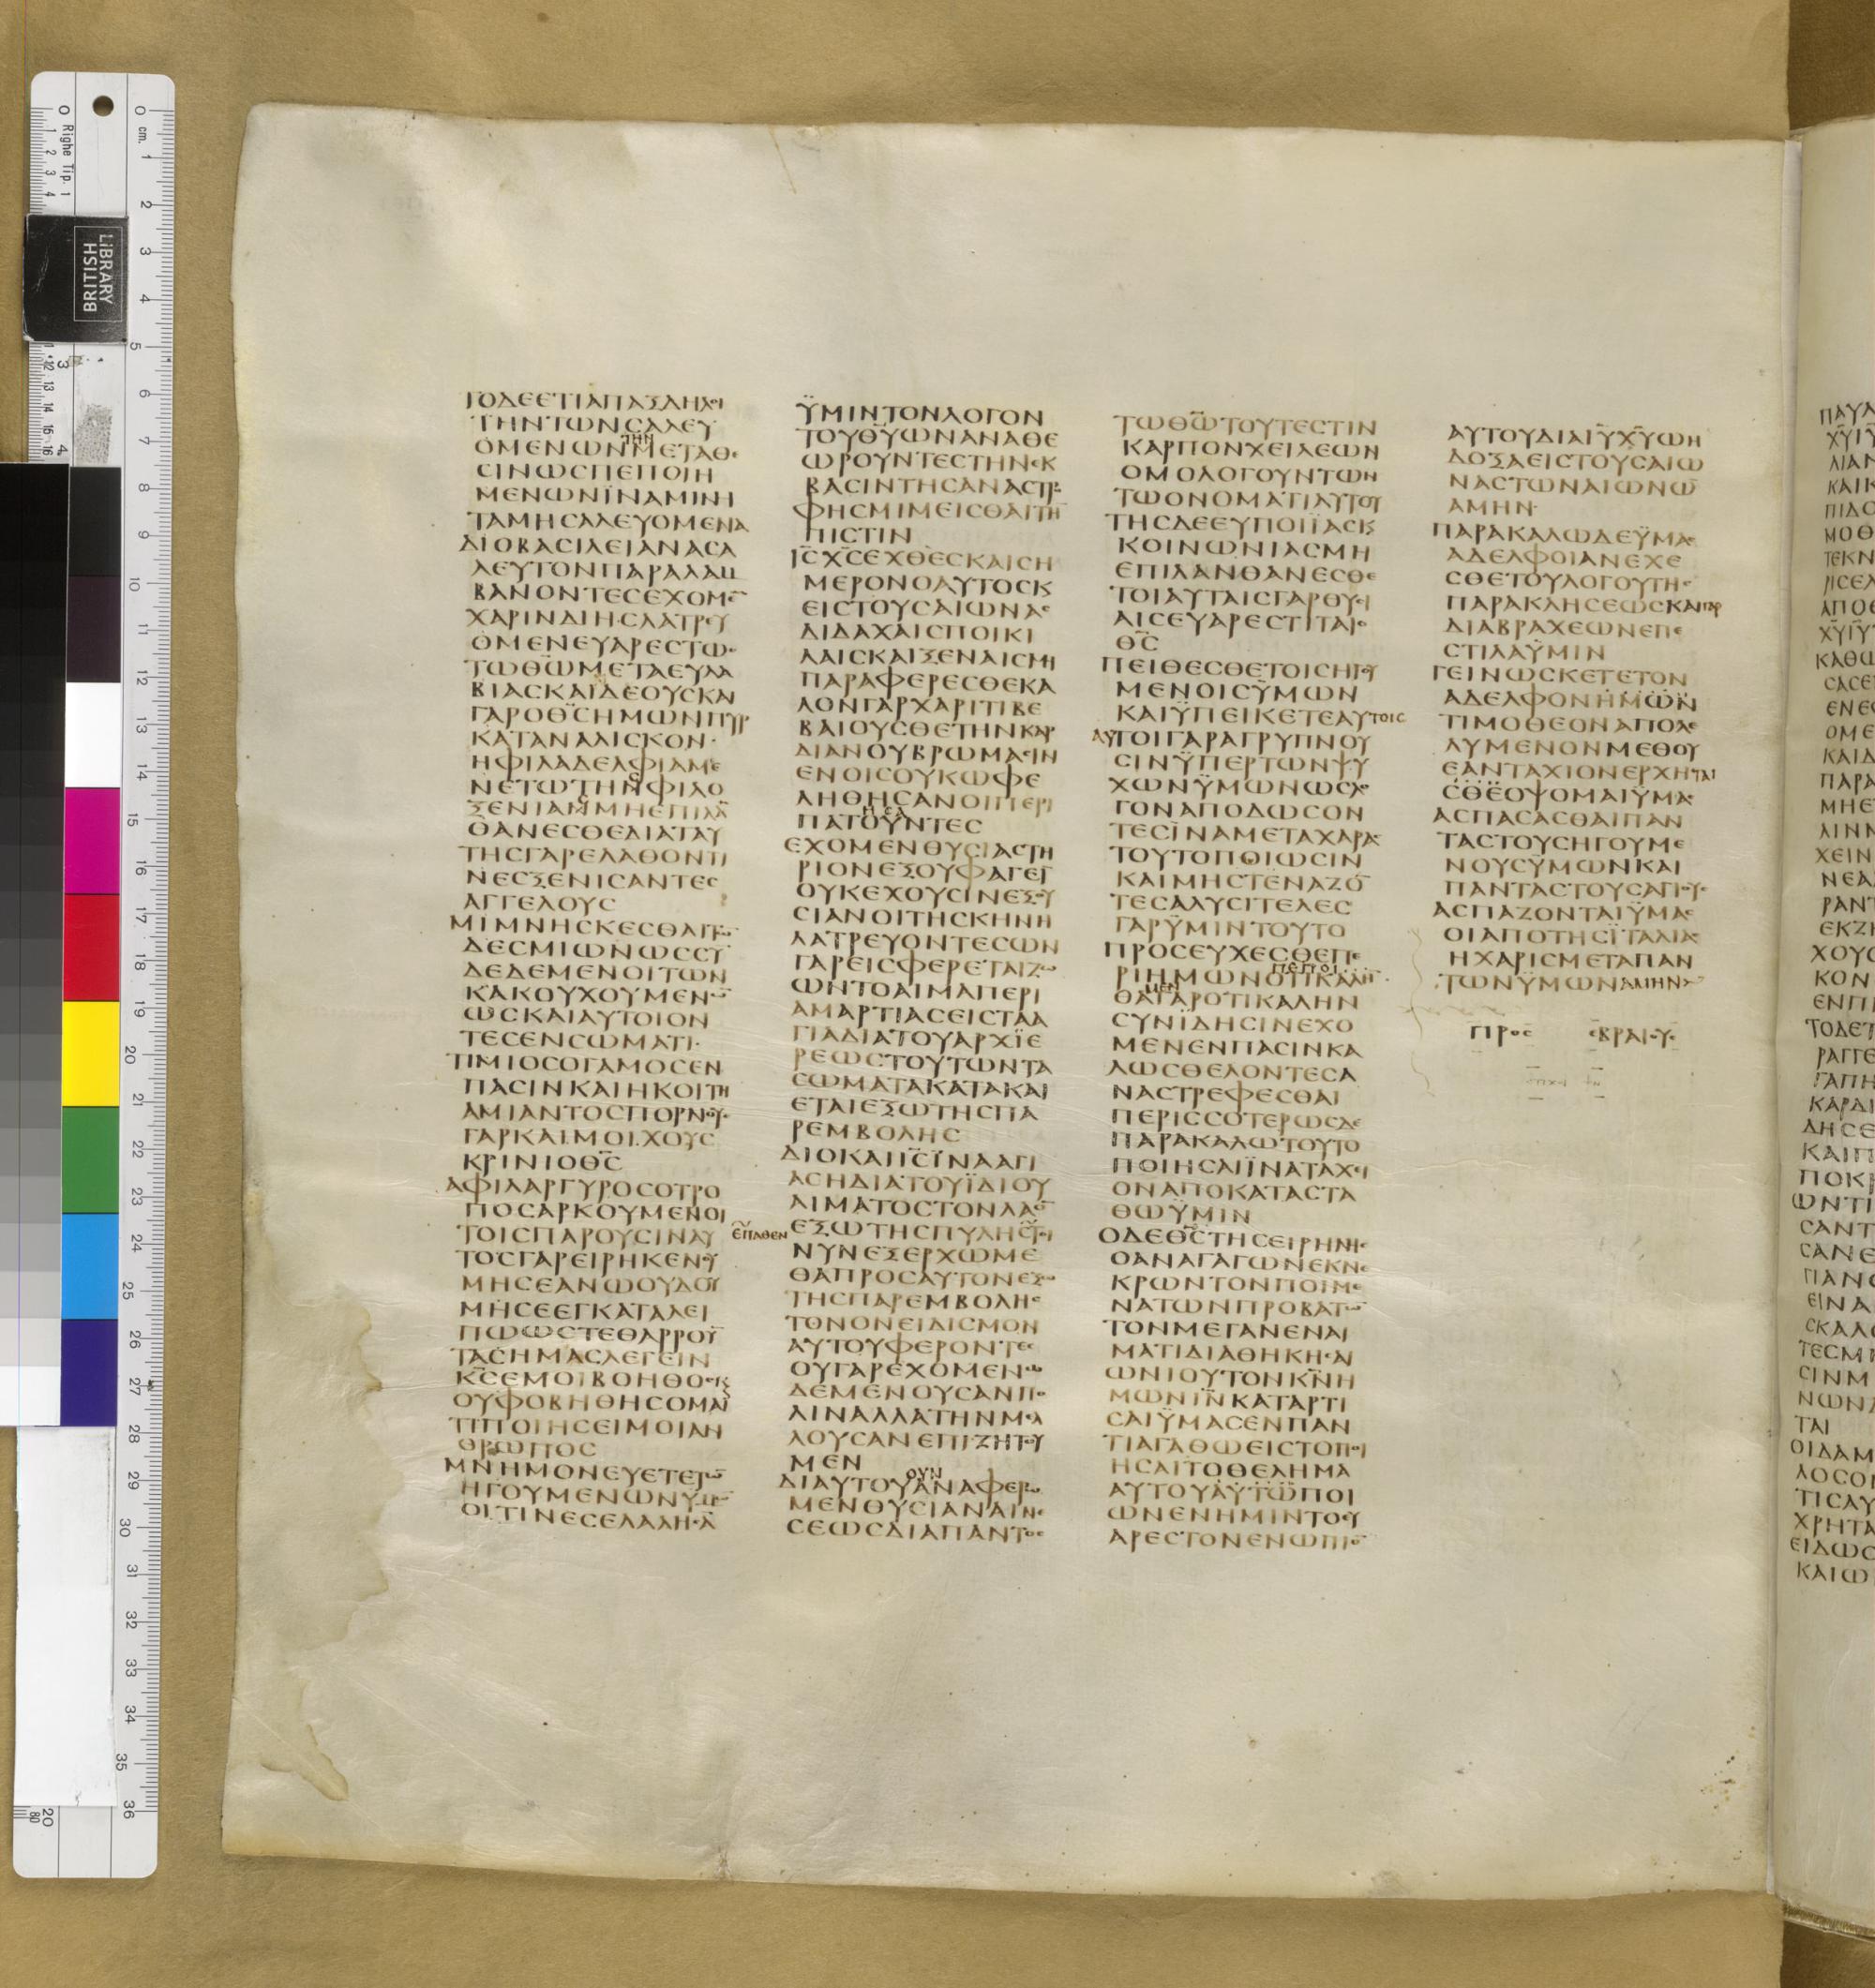 ΤΟΔΕΕΤΙΑΠΑΞΔΗΛΟΙ
ΤΗΝΤΩΝCΑΛΕΥ
ΟΜΕΝΩΝΤΗΝΜΕΤΑΘΕ
CΙΝΩCΠΕΠΟΙΗ
ΜΕΝΩΝΪΝΑΜΙΝΗ
ΤΑΜΗCΑΛΕΥΟΜΕΝΑ
ΔΙΟΒΑCΙΛΕΙΑΝΑCΑ
ΛΕΥΤΟΝΠΑΡΑΛΑΜ
ΒΑΝΟΝΤΕCΕΧΟΜΕ̅
ΧΑΡΙΝΔΙΗCΛΑΤΡΕΥ
ΟΜΕΝΕΥΑΡΕCΤΩC
ΤΩΘ̅Ω̅ΜΕΤΑΕΥΛΑ
ΒΙΑCΚΑΙΔΕΟΥCΚΑΙ
ΓΑΡΟΘ̅C̅ΗΜΩΝΠΥΡ
ΚΑΤΑΝΑΛΙCΚΟΝ·
ΗΦΙΛΑΔΕΛΦΙΑΜΕ
ΝΕΤΩΤΗΝΦΙΛΟ
ΞΕΝΙΑΝΜΗΕΠΙΛΑ̅
ΘΑΝΕCΘΕΔΙΑΤΑΥ
ΤΗCΓΑΡΕΛΑΘΟΝΤΙ
ΝΕCΞΕΝΙCΑΝΤΕC
ΑΓΓΕΛΟΥC
ΜΙΜΝΗCΚΕCΘΑΙΤΩ̅
ΔΕCΜΙΩΝΩCCΥ
ΔΕΔΕΜΕΝΟΙΤΩΝ
ΚΑΚΟΥΧΟΥΜΕΝΩ̅
ΩCΚΑΙΑΥΤΟΙΟΝ
ΤΕCΕΝCΩΜΑΤΙ·
ΤΙΜΙΟCΟΓΑΜΟCΕΝ
ΠΑCΙΝΚΑΙΗΚΟΙΤΗ
ΑΜΙΑΝΤΟCΠΟΡΝΟΥC
ΓΑΡΚΑΙΜΟΙΧΟΥC
ΚΡΙΝΙΟΘ̅C̅
ΑΦΙΛΑΡΓΥΡΟCΟΤΡΟ
ΠΟCΑΡΚΟΥΜΕΝΟΙ
ΤΟΙCΠΑΡΟΥCΙΝΑΥ
ΤΟCΓΑΡΕΙΡΗΚΕΝΟΥ
ΜΗCΕΑΝΩΟΥΔΟΥ
ΜΗCΕΕΓΚΑΤΑΛΕΙ
ΠΩΩCΤΕΘΑΡΡΟΥ̅
ΤΑCΗΜΑCΛΕΓΕΙΝ
Κ̅C̅ΕΜΟΙΒΟΗΘΟCΚ
ΟΥΦΟΒΗΘΗCΟΜΑΙ
ΤΙΠΟΙΗCΕΙΜΟΙΑΝ
ΘΡΩΠΟC
ΜΝΗΜΟΝΕΥΕΤΕΤΩ̅
ΗΓΟΥΜΕΝΩΝΥΜΩ̅
ΟΙΤΙΝΕCΕΛΑΛΗCΑ̅
ΫΜΙΝΤΟΝΛΟΓΟΝ
ΤΟΥΘ̅Υ̅ΩΝΑΝΑΘΕ
ΩΡΟΥΝΤΕCΤΗΝΕΚ
ΒΑCΙΝΤΗCΑΝΑCΤΡΟ
ΦΗCΜΙΜΕΙCΘΑΙΤΗ̅
ΠΙCΤΙΝ
Ι̅C̅Χ̅C̅ΕΧΘΕCΚΑΙCΗ
ΜΕΡΟΝΟΑΥΤΟCΚ
ΕΙCΤΟΥCΑΙΩΝΑC
ΔΙΔΑΧΑΙCΠΟΙΚΙ
ΛΑΙCΚΑΙΞΕΝΑΙCΜΗ
ΠΑΡΑΦΕΡΕCΘΕΚΑ
ΛΟΝΓΑΡΧΑΡΙΤΙΒΕ
ΒΑΙΟΥCΘΕΤΗΝΚΑΡ
ΔΙΑΝΟΥΒΡΩΜΑCΙΝ
ΕΝΟΙCΟΥΚΩΦΕ
ΛΗΘΗCΑΝΟΙΠΕΡΙ
ΠΑΤΟΥΝΤΕC
ΕΧΟΜΕΝΘΥCΙΑCΤΗ
ΡΙΟΝΕΞΟΥΦΑΓΕΙ̅
ΟΥΚΕΧΟΥCΙΝΕΞΟΥ
CΙΑΝΟΙΤΗCΚΗΝΗ
ΛΑΤΡΕΥΟΝΤΕCΩΝ
ΓΑΡΕΙCΦΕΡΕΤΑΙΖΩ
ΩΝΤΟΑΙΜΑΠΕΡΙ
ΑΜΑΡΤΙΑCΕΙCΤΑΑ
ΓΙΑΔΙΑΤΟΥΑΡΧΪΕ
ΡΕΩCΤΟΥΤΩΝΤΑ
CΩΜΑΤΑΚΑΤΑΚΑΙ
ΕΤΑΙΕΞΩΤΗCΠΑ
ΡΕΜΒΟΛΗC
ΔΙΟΚΑΙΙ̅C̅ΪΝΑΑΓΙ
ΑCΗΔΙΑΤΟΥΪΔΙΟΥ
ΑΙΜΑΤΟCΤΟΝΛΑΟ̅
ΕΞΩΤΗCΠΥΛΗC
ΕΠΑΘΕΝ
ΝΥΝΕΞΕΡΧΩΜΕ
ΘΑΠΡΟCΑΥΤΟΝΕΞΩ
ΤΗCΠΑΡΕΜΒΟΛΗC
ΤΟΝΟΝΕΙΔΙCΜΟΝ
ΑΥΤΟΥΦΕΡΟΝΤΕC
ΟΥΓΑΡΕΧΟΜΕΝΩ
ΔΕΜΕΝΟΥCΑΝΠΟ
ΛΙΝΑΛΛΑΤΗΝΜΕΛ
ΛΟΥCΑΝΕΠΙΖΗΤΟΥ
ΜΕΝ
ΔΙΑΥΤΟΥΟΥΝΑΝΑΦΕΡΩ
ΜΕΝΘΥCΙΑΝΑΙΝΕ
CΕΩCΔΙΑΠΑΝΤΟC
ΤΩΘ̅Ω̅ΤΟΥΤΕCΤΙΝ
ΚΑΡΠΟΝΧΕΙΛΕΩΝ
ΟΜΟΛΟΓΟΥΝΤΩΝ
ΤΩΟΝΟΜΑΤΙΑΥΤΟΥ
ΤΗCΔΕΕΥΠΟΙΪΑCΚ
ΚΟΙΝΩΝΙΑCΜΗ
ΕΠΙΛΑΝΘΑΝΕCΘΕ
ΤΟΙΑΥΤΑΙCΓΑΡΘΥCΙ
ΑΙCΕΥΑΡΕCΤΙΤΑΙΟ
Θ̅C̅
ΠΕΙΘΕCΘΕΤΟΙCΗΓΟΥ
ΜΕΝΟΙCΫΜΩΝ
ΚΑΙΫΠΕΙΚΕΤΕΑΥΤΟΙC
ΑΥΤΟΙΓΑΡΑΓΡΥΠΝΟΥ
CΙΝΫΠΕΡΤΩΝΨΥ
ΧΩΝΫΜΩΝΩCΛΟ
ΓΟΝΑΠΟΔΩCΟΝ
ΤΕCΪΝΑΜΕΤΑΧΑΡΑC
ΤΟΥΤΟΠΟΙΩCΙΝ
ΚΑΙΜΗCΤΕΝΑΖΟ̅
ΤΕCΑΛΥCΙΤΕΛΕC
ΓΑΡΫΜΙΝΤΟΥΤΟ
ΠΡΟCΕΥΧΕCΘΕΠΕ
ΡΙΗΜΩΝΟΤΙΚΑΛΗ
ΘΑΜΕΝΓΑΡΟΤΙΚΑΛΗΝ
CΥΝΪΔΗCΙΝΕΧΟ
ΜΕΝΕΝΠΑCΙΝΚΑ
ΛΩCΘΕΛΟΝΤΕCΑ
ΝΑCΤΡΕΦΕCΘΑΙ
ΠΕΡΙCCΟΤΕΡΩCΔΕ
ΠΑΡΑΚΑΛΩΤΟΥΤΟ
ΠΟΙΗCΑΙΪΝΑΤΑΧΕΙ
ΟΝΑΠΟΚΑΤΑCΤΑ
ΘΩΫΜΙΝ
ΟΔΕΘ̅C̅ΤΗCΕΙΡΗΝΗC
ΟΑΝΑΓΑΓΩΝΕΚΝΕ
ΚΡΩΝΤΟΝΠΟΙΜΕ
ΝΑΤΩΝΠΡΟΒΑΤΩ̅
ΤΟΝΜΕΓΑΝΕΝΑΙ
ΜΑΤΙΔΙΑΘΗΚΗCΑΙ
ΩΝΙΟΥΤΟΝΚ̅Ν̅Η
ΜΩΝΙ̅Ν̅ΚΑΤΑΡΤΙ
CΑΙΫΜΑCΕΝΠΑΝ
ΤΙΑΓΑΘΩΕΙCΤΟΠΟΙ
ΗCΑΙΤΟΘΕΛΗΜΑ
ΑΥΤΟΥΑΥΤΩΠΟΙ
ΩΝΕΝΗΜΙΝΤΟΕΥ
ΑΡΕCΤΟΝΕΝΩΠΙΟ̅
ΑΥΤΟΥΔΙΑΙ̅Υ̅Χ̅Υ̅ΩΗ
ΔΟΞΑΕΙCΤΟΥCΑΙΩ
ΝΑCΤΩΝΑΙΩΝΩ̅
ΑΜΗΝ·
ΠΑΡΑΚΑΛΩΔΕΫΜΑC
ΑΔΕΛΦΟΙΑΝΕΧΕ
CΘΕΤΟΥΛΟΓΟΥΤΗC
ΠΑΡΑΚΛΗCΕΩCΚΑΙΓΑΡ
ΔΙΑΒΡΑΧΕΩΝΕΠΕ
CΤΙΛΑΫΜΙΝ
ΓΕΙΝΩCΚΕΤΕΤΟΝ
ΑΔΕΛΦΟΝΗΜΩΝ
ΤΙΜΟΘΕΟΝΑΠΟΛΕ
ΛΥΜΕΝΟΝΜΕΘΟΥ
ΕΑΝΤΑΧΙΟΝΕΡΧΗΤΑΙ
CΘΕΟΨΟΜΑΙΫΜΑC
ΑCΠΑCΑCΘΑΙΠΑΝ
ΤΑCΤΟΥCΗΓΟΥΜΕ
ΝΟΥCΫΜΩΝΚΑΙ
ΠΑΝΤΑCΤΟΥCΑΓΙΟΥC
ΑCΠΑΖΟΝΤΑΙΫΜΑC
ΟΙΑΠΟΤΗCΪΤΑΛΙΑC
ΗΧΑΡΙCΜΕΤΑΠΑΝ
ΤΩΝΫΜΩΝΑΜΗΝ
ΠΡΟC ΕΒΡΑΙΟΥC